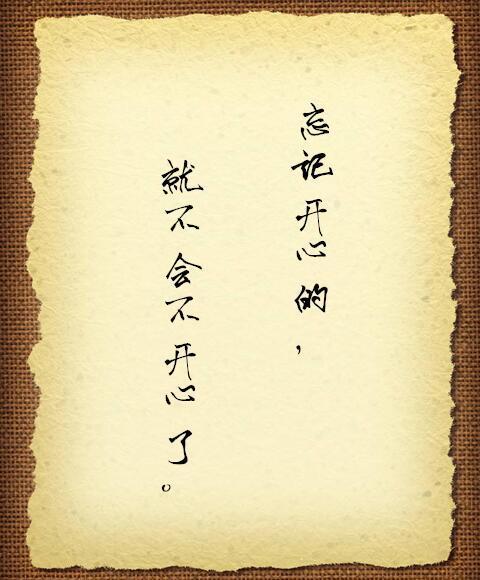 忘记开心的，
就不会不开心了。